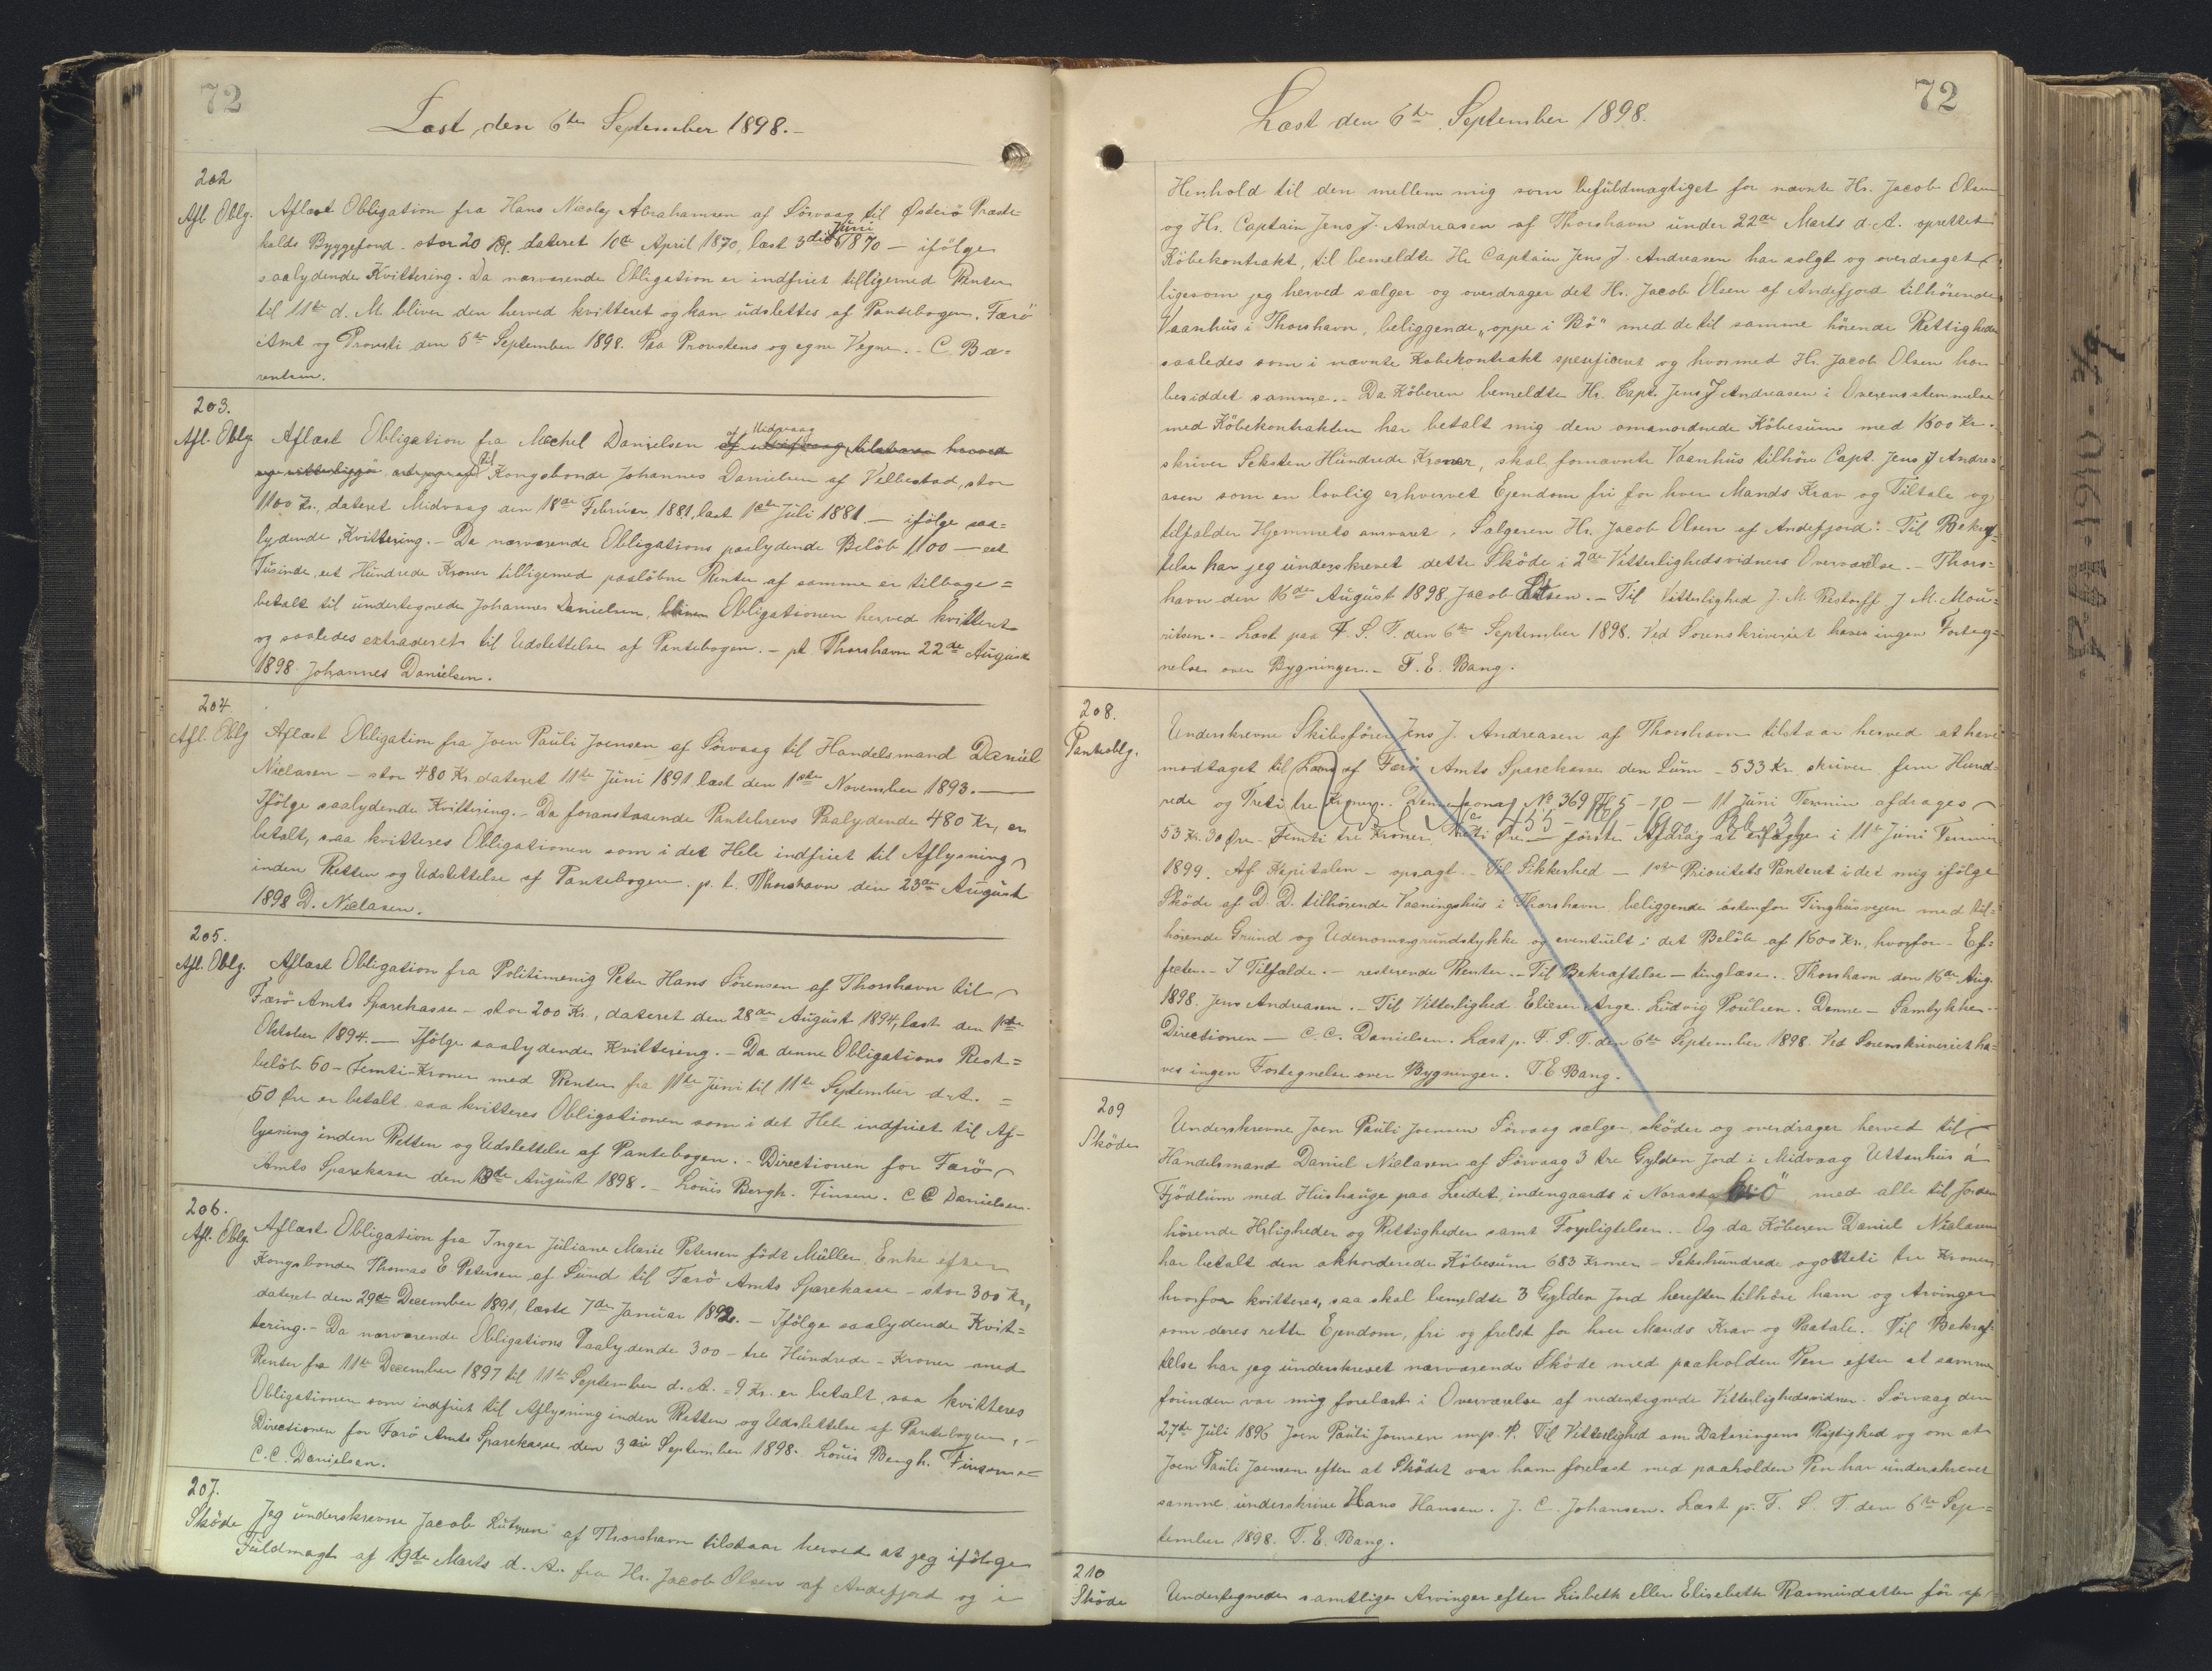 72
Læst, den 6te September 1898.-
202
Afl. Oblg.
Aflæst Obligation fra Hans Nicolaj Abrahamsen af Sörvaag til Østerö Præste-
kalds Byggefond - stor 20 Rd. dateret 10de April 1870, læst 3die Juni 1870 - ifölge
saalydende Kvittering. Da nærværende Obligation er indfriet tilligemed Renter
til 11te d. M. bliver den herved kvitteret og kan udslettes af Pantebogen. Færö
Amt og Provsti den 5te September 1898. Paa Provstens og egne Vegne. - C. Bæ=
rentsen.
203.
Afl. Oblg.
Aflæst Obligation fra Mechel Danielsen af Midvaag
til Kongsbonde Johannes Danielsen af Velbestad, stor
1100 Kr., dateret Midvaag den 18de Februar 1881, læst 1ste Juli 1881. - ifölge saa=
lydende Kvittering. - Da nærværende Obligations paalydende Belöb 1100 - eet
Tusinde, eet Hundrede Kroner tilligemed paalöbne Renter af samme er tilbage=
betalt til undertegnede Johannes Danielsen, bliver Obligationen herved kvitteret
og saaledes extraderet til Udslettelse af Pantebogen. - pt. Thorshavn 22de August
1898. Johannes Danielsen.
204.
Afl. Oblg
Aflæst Obligation fra Joen Pauli Joensen af Sörvaag til Handelsmand Daniel
Niclasen - stor 480 Kr. dateret 11te Juni 1891 læst den 1ste November 1893. -
Ifölge saalydende Kvittering. - Da foranstaaende Pantebrevs Paalydende 480 Kr., er
betalt, saa kvitteres Obligationen som i det Hele indfriet til Aflysning
inden Retten og Udslettelse af Pantebogen. p. t. Thorshavn den 23de August
1898 D. Niclasen.
205.
Afl. Oblg.
Aflæst Obligation fra Politimenig Peter Hans Sörensen af Thorshavn til
Færö Amts Sparekasse - stor 200 Kr., dateret den 28de August 1894, læst den 1ste
Oktober 1894. - Ifölge saalydende Kvittering. - Da denne Obligations Rest=
belöb 50 - Femti - Kroner med Renter fra 11te Juni til 11te September d. A. =
50 Øre er betalt saa kvitteres Obligationen som i det Hele indfriet til Af-
lysning inden Retten og Udslettelse af Pantebogen. - Directionen for Færö
Amts Sparekasse den 18de August 1898. - Louis Bergh. Finsen. C. C. Danielsen.
206.
Afl. Oblg
Aflæst Obligation fra Inger Juliane Marie Petersen födt Müller, Enke efter
Kongsbonde Thomas E Petersen af Sund til Færö Amts Sparekasse - stor 300 Kr.,
dateret den 29de December 1891, læst 7de Januar 1892. - Ifölge saalydende Kvit=
tering. - Da nærværende Obligations Paalydende 300 - tre Hundrede - Kroner med
Renter fra 11te December 1897 til 11te September d. A. = 9 Kr. er betalt, saa kvitteres
Obligationen som indfriet til Aflysning inden Retten og Udslettelse af Pantebogen. -
Directionen for Færö Amts Sparekasse den 3die September 1898. Louis Bergh. Finsen
C. C. Danielsen.
207.
Sköde
Jeg underskrevne Jacob Lützen af Thorshavn tilstaar herved at jeg ifölge
Fuldmagt af 19de Marts d. A. fra Hr. Jacob Olsen af Andefjord og i
72
Læst den 6te September 1898.
Henhold til den mellem mig som befuldmægtiget for nævnte Hr. Jacob Olsen
og Hr. Captain Jens J. Andreasen af Thorshavn under 22de Marts d. A. oprettet
Köbekontrakt, til bemeldte Hr Captain Jens J. Andreasen har solgt og overdraget
ligesom jeg herved sælger og overdrager det Hr. Jacob Olsen af Andefjord tilhörende
Vaanhus i Thorshavn, beliggende "oppe i Bö" med de til samme hörende Rettigheder
saaledes som i nævnte Köbekontrakt spesificeret og hvormed Hr. Jacob Olsen har
besiddet samme. - Da Köberen bemeldte Hr. Capt. Jens J Andreasen i Overensstemmelse
med Köbekontrakten har betalt mig den omanordnede Köbesum med 1600 Kr.
skriver Seksten Hundrede Kroner, skal fornævnte Vaanhus tilhöre Capt. Jens J Andre=
asen som en lovlig erhvervet Ejendom fri for hver Mands Krav og Tiltale og
tilfalder Hjemmets ansvaret, Sælgeren Hr. Jacob Olsen af Andefjord. - Til Bekræf=
telse har jeg underskrevet dette Sköde i 2de Vitterlighedsvidners Overværelse. - Thors=
havn den 16de August 1898 Jacob Lützen. - Til Vitterlighed J. M. Restorff. J M. Mou=
ritsen. - Læst paa F. S. T. den 6te September 1898. Ved Sorenskriveriet haves ingen Forteg=
nelse over Bygninger. - T. E. Bang.
208.
Panteoblg.
Underskrevne Skibsförer Jens J. Andreasen af Thorshavn tilstaar herved at have
modtaget til Laans af Færö Amts Sparekasse den Sum - 533 Kr. skriver fem Hund-
rede og Treti tre Kroner. - Denne Nº 369 5 - 10 - 11 Juni Termin afdrages
Udsl. Nr 455
53 Kr. 30 Øre - Femti tre Kroner Treti Øre - förste Afdrag at erlægge i 11te Juni Termin
1899. Af Kapitalen - opsagt. - Til Sikkerhed - 1ste Prioritets Panteret i det mig ifölge
Sköde af D. D. tilhörende Vaaningshus i Thorshavn beliggende östenfor Tinghusvejen med til=
hörende Grund og Udenomsgrundstykke og eventuelt i det Belöb af 1600 Kr., hvorfor - Ef=
fecter. - I Tilfælde. - resterende Renter. - Til Bekræftelse - tinglæse. - Thorshavn den 16de Aug.
1898. Jens Andreasen. - Til Vitterlighed. Elieser Arge. Ludvig Poulsen. Denne - Samtykke. -
Directionen - C. C. Danielsen. Læst p. F. S. T. den 6te September 1898. Ved Sorenskriveriet ha=
ves ingen Fortegnelse over Bygninger. T. E Bang.
209
Sköde
Underskrevne Joen Pauli Joensen Sörvaag sælger, sköder og overdrager herved til
Handelsmand Daniel Niclasen af Sörvaag 3 tre Gylden Jord i Midvaag Uttanhus á
Fjödlum med Hushauge paa Leidet, indengaards i Norasta Bö med alle til Jorden
hörende Herligheder og Rettigheder samt Forpligtelsen. - Og da Köberen Daniel Niclasen
har betalt den akkorderede Köbesum 683 Kroner - Sekshundrede og otteti tre Kroner
hvorfor kvitteres, saa skal bemeldte 3 Gylden Jord herefter tilhöre ham og Arvinger
som deres rette Ejendom, fri og frelst for hver Mands Krav og Paatale. Til Bekræf-
telse har jeg underskrevet nærværende Sköde med paaholden Pen efter at samme
forinden var mig forelæst i Overværelse af nedentegnede Vitterlighedsvidner. Sörvaag den
27de Juli 1896 Joen Pauli Joensen m. p. P. Til Vitterlighed om Dateringens Rigtighed og om at
Joen Pauli Joensen efter at Sködet var ham forelæst med paaholden Pen har underskrevet
samme underskrive Hans Hansen. J. C. Johansen. Læst p. F. S. T. den 6te Sep=
tember 1898. T. E. Bang.
210
Sköde
Undertegnede samtlige Arvinger efter Lisbeth eller Elisebeth Rasmusdatter för af